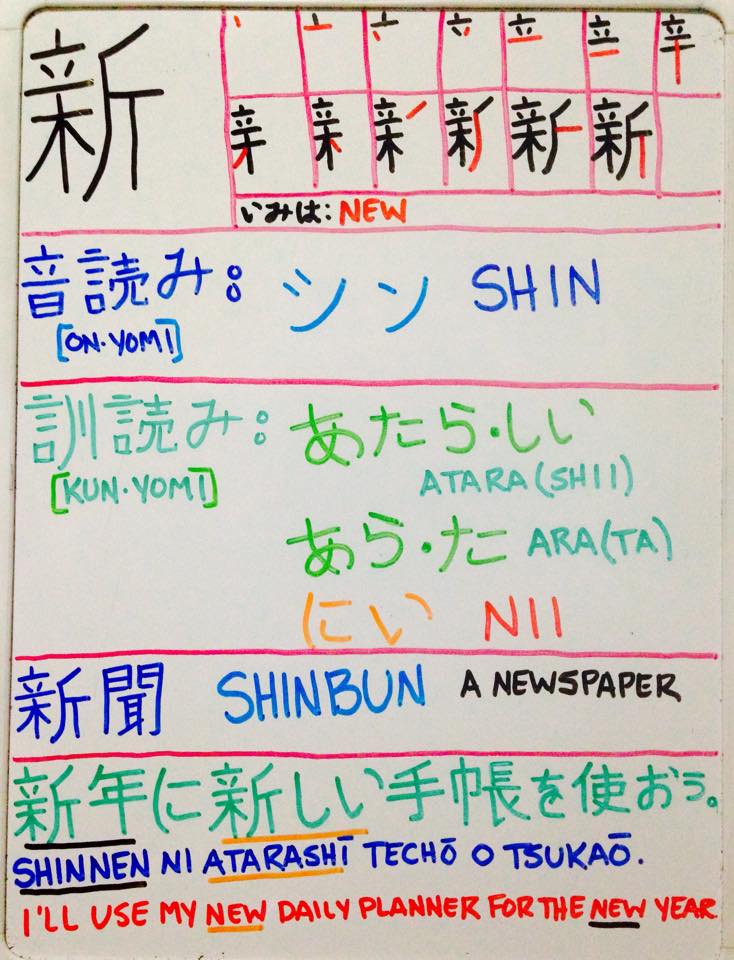 新
新
いみは: NEW
音読み: シン SHIN
[ON·YOMI]
訓読み: あたら·しい
[KUN·YOMI] ATARA(SHII)
あら·た ARA(TA)
にい NII
新聞 SHINBUN A NEWSPAPER
新年に新しい手帳を使おう。
SHINNEN NI ATARASHĪ TECHŌ O TSUKAŌ.
I'LL USE MY NEW DAILY PLANNER FOR THE NEW YEAR